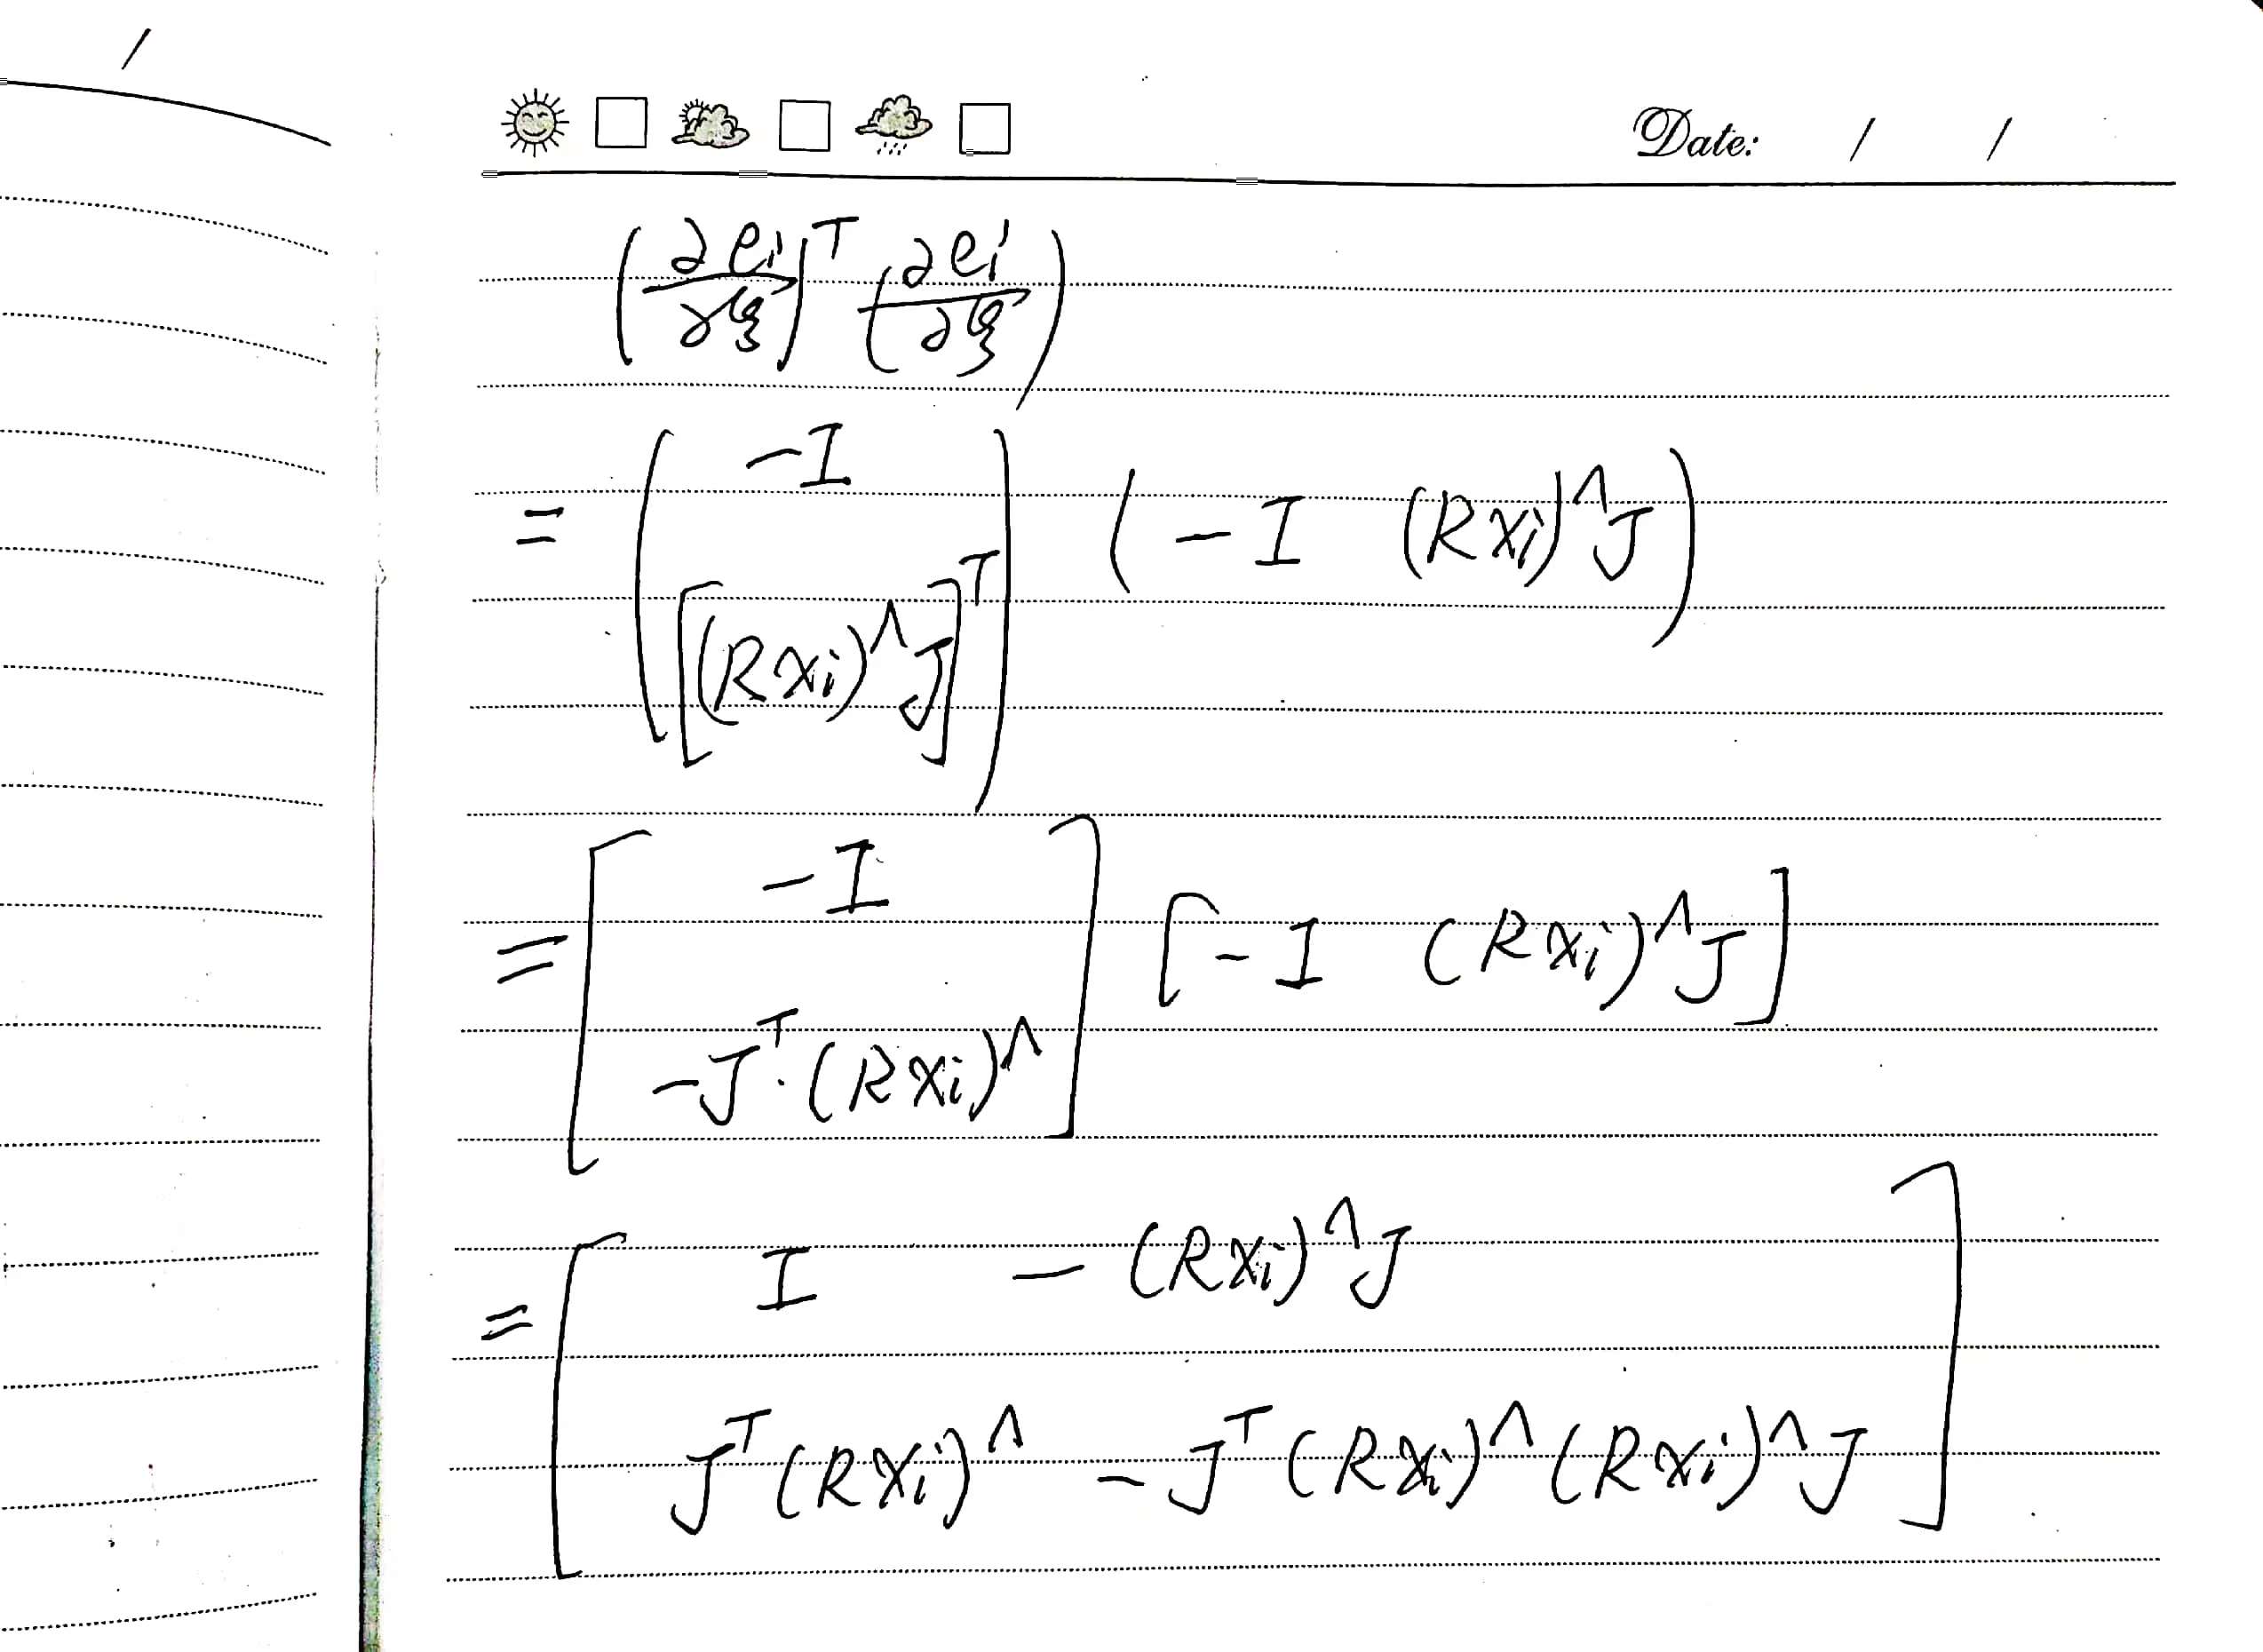 /
Date: / /
(∂ei/∂ξ)^T (∂ei/∂ξ)
= ( -I ; [(Rxi)^∧ J]^T ) ( -I (Rxi)^∧ J )
= [ -I ; -J^T · (Rxi)^∧ ] [ -I (Rxi)^∧ J ]
= [ I - (Rxi)^∧ J ; J^T (Rxi)^∧ - J^T (Rxi)^∧ (Rxi)^∧ J ]